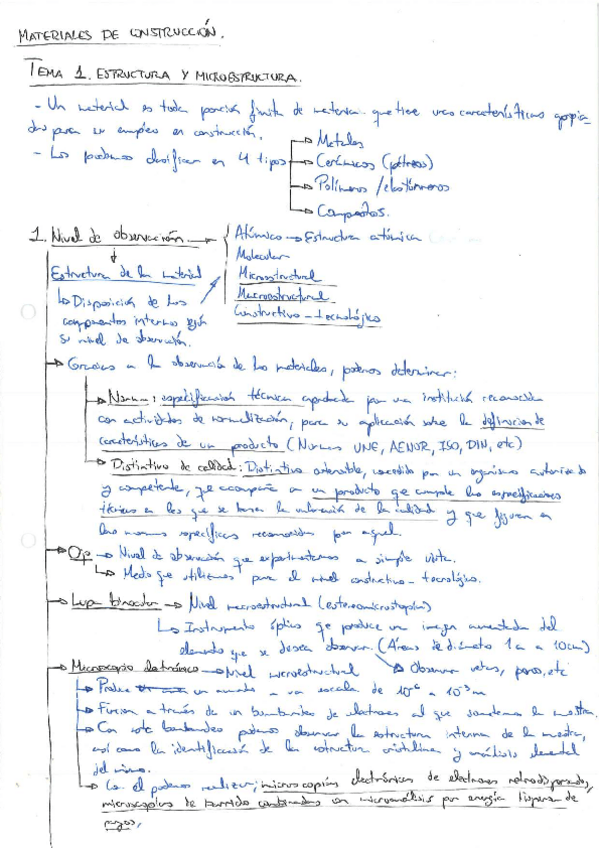 MATERIALES DE CONSTRUCCIÓN.
TEMA 1. ESTRUCTURA Y MICROESTRUCTURA.
- Un material es toda porción finita de materia que tiene unas características apropia
das para su empleo en construcción.
- Los podemos clasificar en 4 tipos
Metales
Cerámicos (pétreos)
Polímeros / elastómeros
Compuestos.
1. Nivel de observación
Atómico → Estructura atómica
Molecular
Microestructural
Macroestructural
Constructivo - tecnológico
Estructura de un material
Disposición de los
componentes internos según
su nivel de observación.
Gracias a la observación de los materiales, podemos determinar:
Norma: especificación técnica aprobada por una institución reconocida
con actividades de normalización, para su aplicación sobre la definición de
características de un producto (Normas UNE, AENOR, ISO, DIN, etc)
Distintivo de calidad: Distintivo ostensible, concedido por un organismo autorizado
y competente, que acompaña a un producto que cumple las especificaciones
técnicas en las que se basan la valoración de la calidad y que figuran en
las normas específicas reconocidas por aquel.
Ojo → Nivel de observación que experimentamos a simple vista.
Medio que utilizamos para el nivel constructivo - tecnológico.
Lupa binocular → Nivel macroestructural (estereomicroscopio)
Instrumento óptico que produce una imagen aumentada del
elemento que se desea observar. (Áreas de diámetro 1 a 10cm)
Observar vetas, poros, etc
Microscopio electrónico → Nivel microestructural
Produce un aumento a una escala de 10⁻⁶ a 10⁻³ m
Funciona a través de un bombardeo de electrones al que sometemos la muestra.
Con este bombardeo podemos observar la estructura interna de la muestra,
así como la identificación de la estructura cristalina y análisis elemental
del mismo.
Con el podemos realizar: microscopías electrónicas de electrones retrodispersados,
microscopios de barrido combinados con microanálisis por energía dispersan de
rayos,